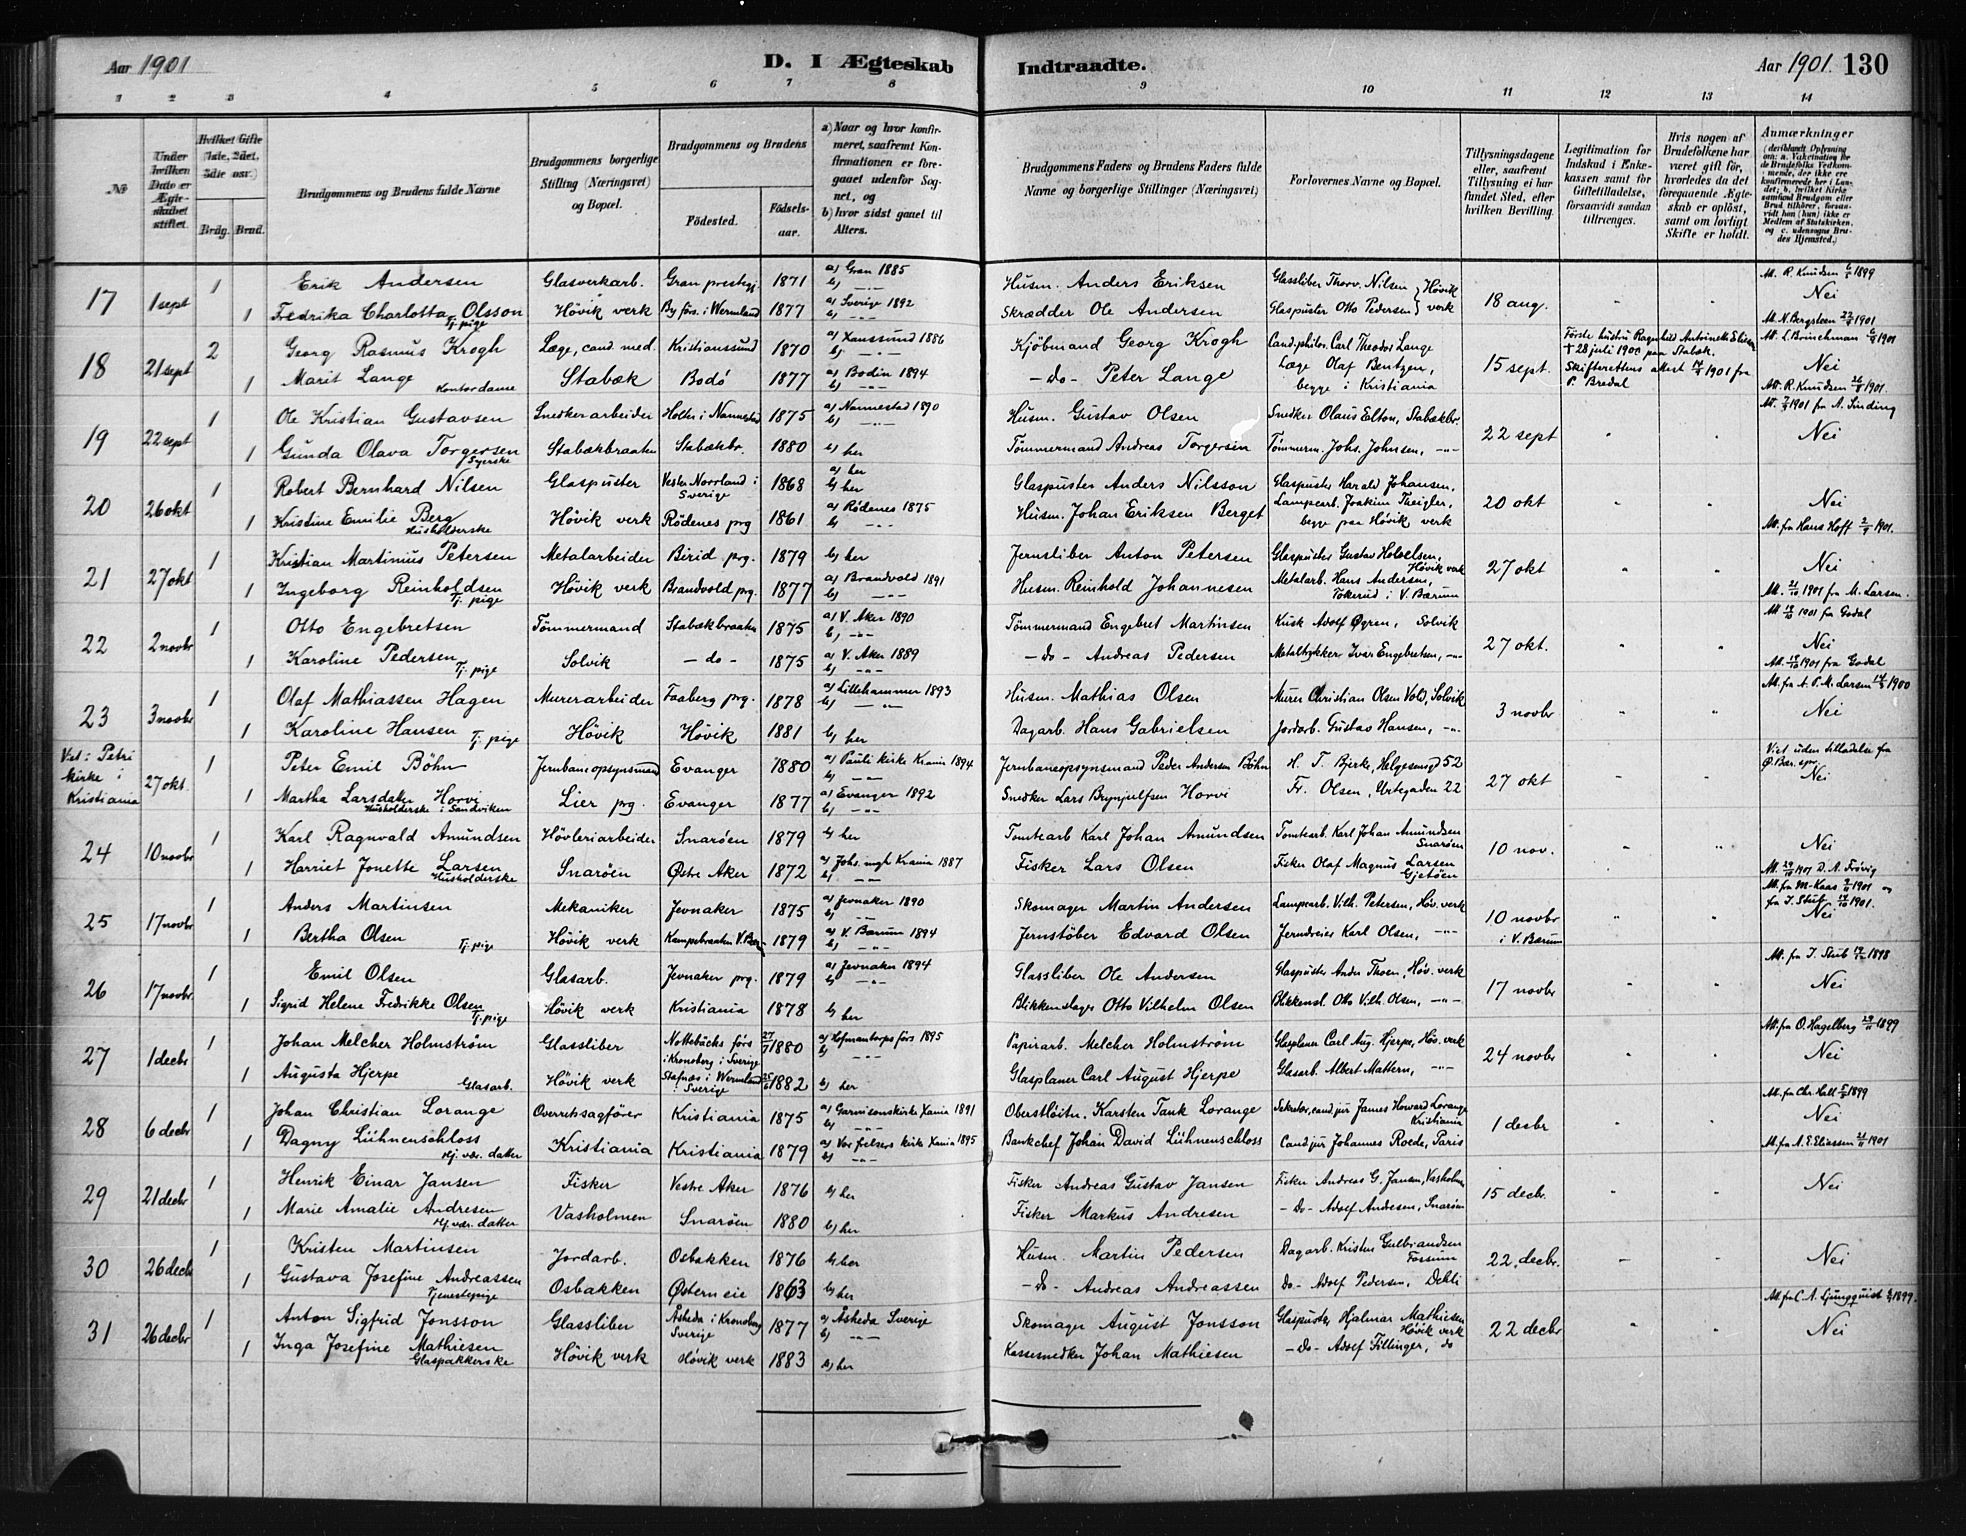 Aar 1901
D. I Ægteskab Indtraadte.
Aar 1901. 130
1 2 3 4 5 6 7 8 9 10 11 12 13 14
№
Under hvilken Dato er Ægteskabet stiftet.
Hvilket Gifte (1ste, 2det, 3die osv.)
Brdg. Brud.
Brudgommens og Brudens fulde Navne
Brudgommens borgerlige Stilling (Næringsvei) og Bopæl.
Brudgommens og Brudens
Fødested. Fødselsaar.
a) Naar og hvor konfirmeret, saafremt Konfirmationen er foregaaet udenfor Sognet, og
b) hvor sidst gaaet til Alters.
Brudgommens Faders og Brudens Faders fulde Navne og borgerlige Stillinger (Næringsvei)
Forlovernes Navne og Bopæl.
Tillysningsdagene eller, saafremt Tillysning ei har fundet Sted, efter hvilken Bevilling.
Legitimation for Indskud i Enkekassen samt for Giftetilladelse, forsaavidt saadan tiltrænges.
Hvis nogen af Brudefolkene har været gift før, hvorledes da det foregaaende Ægteskab er opløst, samt om lovligt Skifte er holdt.
Anmærkninger (deriblandt Oplysning om: a. Vakcination for de Brudefolks Vedkommende, der ikke ere konfirmerede her i Landet; b. hvilket Kirkesamfund Brudgom eller Brud tilhører, forsaavidt han (hun) ikke er Medlem af Statskirken, og c. udensogns Brudes Hjemsted.)
17 1 sept 1 Erik Andersen Glasverkarb. Gran prestegj. 1871 a) Gran 1885 b) —"— Husm. Anders Eriksen Glassliber Thorv. Nilsen } Høvik 18 aug. " " Att. R. Knudsen 1899
1 Fredrika Charlotta Olsson Tj. pige Høvik verk By förs. i Wermland 1877 a) Sverige 1892 b) —"— Skrædder Ole Andersen Glaspuster Otto Pedersen } verk Nei Att. N. Bergsteen 1901
18 21 sept 2 Georg Rasmus Krogh Læge, cand. med. Kristianssund 1870 a) Xanssund 1886 b) —"— Kjöbmand Georg Krogh Cand. philos. Carl Theodor Lange 15 sept. Første hustru Ragnhild Antoinette † 28 juli 1900 paa Stabæk. Att. L. Brinchman 1901
1 Marit Lange Kontordame Stabæk Bodö 1877 a) Bodin 1894 b) —"— —do— Peter Lange Læge Olaf Bentzen, begge i Kristiania Skifterettens attest 1901 fra P. Bredal Nei Att. R. Knudsen 1901.
19 22 sept 1 Ole Kristian Gustavsen Snedkerarbeider Holter i Nannestad 1875 a) Nannestad 1890 b) —"— Husm. Gustav Olsen Snedker Olaus Elton, Stabækbr. 22 sept " " Att. 1901 fra A. Sinding
1 Gunda Olava Torgersen Syerske Stabækbraaten Stabækbr. 1880 b) her Tømmermand Andreas Torgersen Tømmerm. Johs. Johnsen, —"— Nei
20 26 okt 1 Robert Bernhard Nilsen Glaspuster Vester Norrland i Sverige 1868 a) her b) her Glaspuster Anders Nilsson Glaspuster Harald Johansen, 20 okt " " Nei
1 Kristine Emilie Berg Husholderske Høvik verk Rödenes prg 1861 a) Rödenes 1875 b) —"— Husm. Johan Eriksen Berget Lampearb. Joakim Theigler, begge paa Høvik verk Att. fra Hans Hoff 1901.
21 27 okt 1 Kristian Martinius Petersen Metalarbeider Birid prg. 1879 b) her Jernsliber Anton Petersen Glaspuster Gustav Holvelsen, Høvik verk 27 okt " " Nei
1 Ingeborg Reinholdsen Tj. pige Høvik verk Brandvold prg. 1877 a) Brandvold 1891 b) —"— Husm. Reinhold Johannesen Metalarb. Hans Andersen, Tokerud i V. Bærum Att. 1901 fra M. Larsen.
22 2 novbr 1 Otto Engebretsen Tömmermand Stabækbraaten 1875 a) V. Aker 1890 b) —"— Tömmermand Engebret Martinsen Kusk Adolf Øgren, Solvik 27 okt. " " Att. 1901 fra Godal
1 Karoline Pedersen Tj. pige Solvik —do— 1875 a) V. Aker 1889 b) —"— —do— Andreas Pedersen Metaltrykker Ivar Engebretsen, —"— Nei Att. 1901 fra Godal
23 3 novbr 1 Olaf Mathiassen Hagen Murerarbeider Faaberg prg. 1878 a) Lillehammer 1893 b) —"— Husm. Mathias Olsen Murer Christian Olsen Vold, Solvik 3 novbr " " Att. fra A. P. M. Larsen 1900
1 Karoline Hansen Tj. pige Høvik Høvik 1881 b) her Dagarb. Hans Gabrielsen Jordarb. Gustav Hansen, —"— Nei
Viet: Petri kirke i Kristiania 27 okt. 1 Peter Emil Böhn Jernbaneopsynsmand Evanger 1880 a) Pauli kirke Krania 1894 b) —"— Jernbaneopsynsmand Peder Andersen Böhn H. T. Bjerke, Helgesensgd 52 27 okt Viet uden tilladelse fra Ø. Bær. spr. Nei
1 Martha Larsdatter Horvi Husholderske i Sandviken Lier pg. Evanger 1877 a) Evanger 1892 b) —"— Snedker Lars Brynjulfsen Horvi Fr. Olsen, Urtegaden 22
24 10 novbr 1 Karl Ragnvald Amundsen Høvleriarbeider Snarøen 1879 b) her Tomtearb Karl Johan Amundsen Tomtearb. Karl Johan Amundsen Snarøen 10 nov. " " Nei
1 Harriet Jonette Larsen Husholderske Snarøen Østre Aker 1872 a) Johs. mgh Krania 1887 b) —"— Fisker Lars Olsen Fisker Olaf Magnus Larsen Gjetøen Att. 1901 D. A. Frøvig
25 17 novbr 1 Anders Martinsen Mekaniker Jevnaker 1875 a) Jevnaker 1890 b) —"— Skomager Martin Andersen Lampearb. Vilh. Petersen, Høv. verk 10 novbr i V. Bærum " " Att. fra M. Kaas 1901 og fra J. Stub 1901. Nei
1 Bertha Olsen Tj. pige Høvik verk Kampebraaten V. Bær. 1879 a) V. Bærum 1894 b) —"— Jernstöber Edvard Olsen Jerndreier Karl Olsen, —"—
26 17 novbr. 1 Emil Olsen Glasarb. Jevnaker prg. 1879 a) Jevnaker 1894 b) —"— Glassliber Ole Andersen Glaspuster Anders Thoen, Høv. verk 17 novbr " " Att. fra J. Stub 1898
1 Sigrid Helene Fredrikke Olsen Tj. pige Høvik verk Kristiania 1878 b) her Blikkenslager Otto Vilhelm Olsen Blikkensl. Otto Vilh. Olsen, —"— Nei
27 1 decbr 1 Johan Melcher Holmström Glassliber Nottebäcks förs i Kronoberg i Sverige 27/7 1880 a) Hofmantorps förs 1895 b) —"— Papirarb. Melcher Holmström Glasplaner Carl Aug. Hjerpe, Høv. verk 24 novbr " " Att. fra O. Hagelberg 1899
1 Augusta Hjerpe Glasarb. Høvik verk Stafnæs i Wermland i Sverige 1882 b) her Glasplaner Carl August Hjerpe Glasarb. Albert Mattern, —"— Nei
28 6 decbr 1 Johan Christian Lorange Overretssagfører Kristiania 1875 a) Garnisonskirke Xania 1891 b) —"— Oberstløitn. Karsten Tank Lorange Sekretær, cand. jur James Howard Lorange Kristiania 1 decbr " " Att. fra Chr. Hall 1899 Nei
1 Dagny Lühnenschloss Hj. vær. datter Kristiania Kristiania 1879 a) Vor frelsers kirk Xania 1895 b) —"— Bankchef Johan David Lühnenschloss Cand jur Johannes Roede, Paris Att. fra A. E. Eliassen 1901
29 21 decbr 1 Henrik Einar Jansen Fisker Vestre Aker 1876 b) her Fisker Andreas Gustav Jansen Fisker Andreas G. Jansen, Vasholmen 15 decbr. " " Nei
1 Marie Amalie Andresen Hj. vær. datter Vasholmen Snarøen 1880 b) her Fisker Markus Andresen —Do— Adolf Andresen, Snarøen
30 26 decbr 1 Kristen Martinsen Jordarb. Osbakken 1876 b) her Husm. Martin Pedersen Dagarb. Kristen Gulbrandsen Fossum 22. decbr. " " Nei
1 Gustava Josefine Andreassen Tjenestepige Osbakken Østern eie 1863 b) her —Do— Andreas Andreassen Do— Adolf Pedersen, Dehli
31 26 decbr 1 Anton Sigfrid Jonsson Glassliber Åsheda i Kronoberg Sverige 1877 a) Åsheda Sverige b) —"— Skomager August Jonsson Glaspuster Hjalmar Mathiesen Høvik verk 22 decbr " " Att. fra C. A. Ljungquist 1899.
1 Inga Josefine Mathiesen Glaspakkerske Høvik verk Høvik verk 1883 b) her Kassesnedker Johan Mathiesen —Do— Adolf Fillinger, do Nei